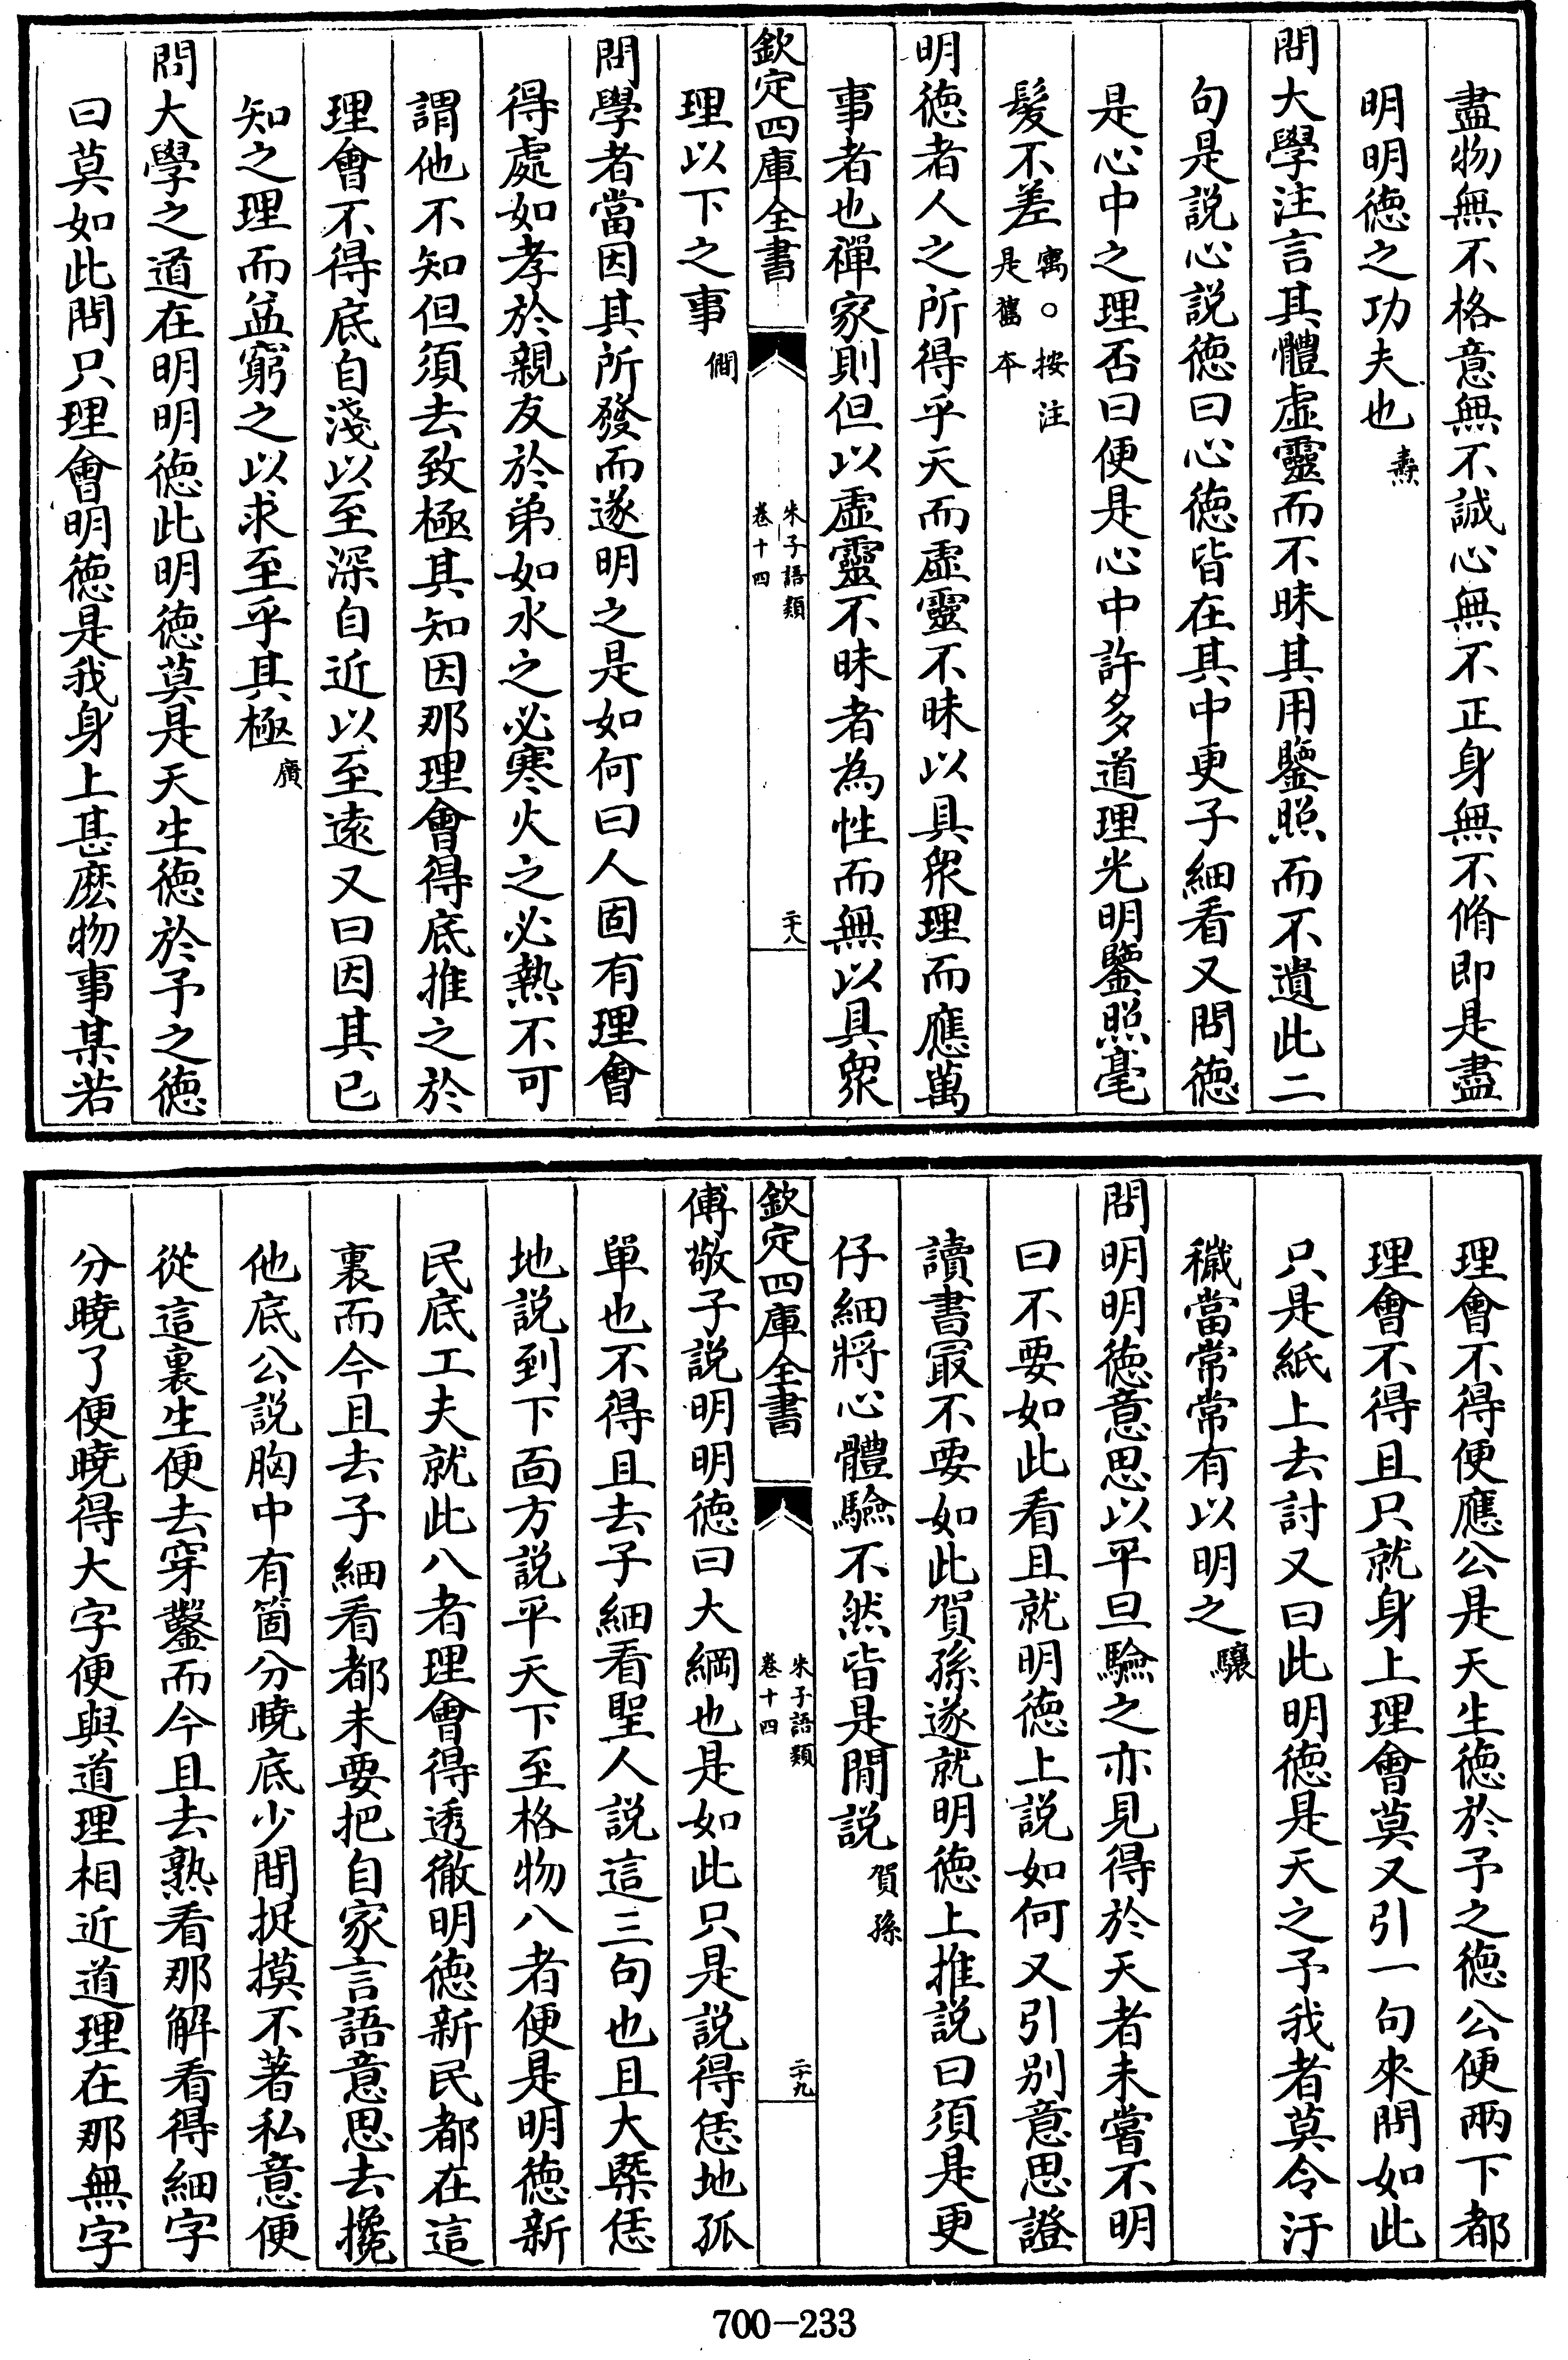 盡物無不格意無不誠心無不正身無不脩即是盡
明明徳之功夫也 燾
問大學注言其體虛靈而不昧其用鑒照而不遺此二
句是説心説徳曰心徳皆在其中更子細看又問徳
是心中之理否曰便是心中許多道理光明鑒照毫
髮不差 㝢○按注是舊本
明徳者人之所得乎天而虛靈不昧以具衆理而應萬
事者也禪家則但以虛靈不昧者為性而無以具衆
欽定四庫全書
朱子語類
卷十四
二十八
理以下之事 僩
問學者當因其所發而遂明之是如何曰人固有理會
得處如孝於親友於弟如水之必寒火之必熱不可
謂他不知但須去致極其知因那理會得底推之於
理會不得底自淺以至深自近以至逺又曰因其已
知之理而益窮之以求至乎其極 廣
問大學之道在明明徳此明徳莫是天生徳於予之徳
曰莫如此問只理會明徳是我身上甚麽物事某若
理會不得便應公是天生徳於予之徳公便兩下都
理會不得且只就身上理會莫又引一句來問如此
只是紙上去討又曰此明徳是天之予我者莫令汙
穢當常常有以明之 驤
問明明徳意思以平旦驗之亦見得於天者未嘗不明
曰不要如此看且就明徳上説如何又引别意思證
讀書最不要如此賀孫遂就明徳上推説曰須是更
仔細將心體驗不然皆是閒説 賀孫
欽定四庫全書
朱子語類
卷十四
二十九
傅敬子説明明徳曰大綱也是如此只是説得恁地孤
單也不得且去子細看聖人説這三句也且大槩恁
地説到下面方説平天下至格物八者便是明徳新
民底工夫就此八者理會得透徹明徳新民都在這
裏而今且去子細看都未要把自家言語意思去攙
他底公説胸中有箇分曉底少間捉摸不著私意便
從這裏生便去穿鑿而今且去熟看那解看得細字
分曉了便曉得大字便與道理相近道理在那無字
700—233